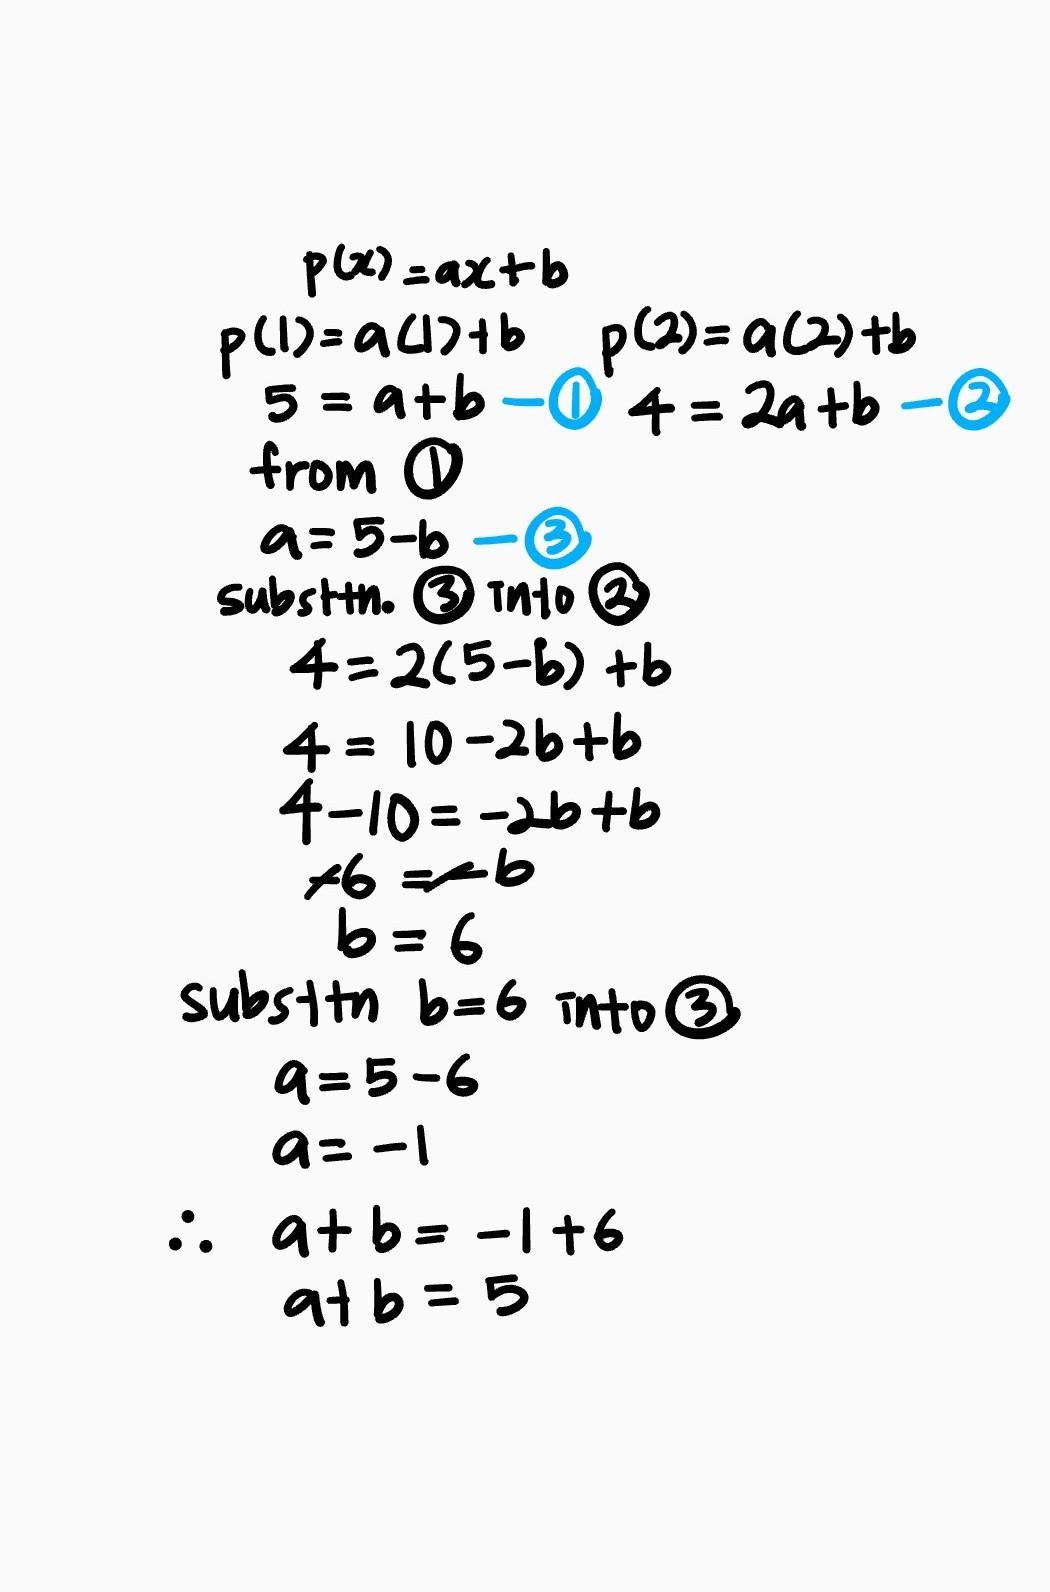 p(x) = ax + b
p(1) = a(1) + b    p(2) = a(2) + b
5 = a + b — ①    4 = 2a + b — ②
from ①
a = 5 - b — ③
substtn. ③ into ②
4 = 2(5 - b) + b
4 = 10 - 2b + b
4 - 10 = -2b + b
-6 = -b
b = 6
substtn b = 6 into ③
a = 5 - 6
a = -1
∴ a + b = -1 + 6
a + b = 5